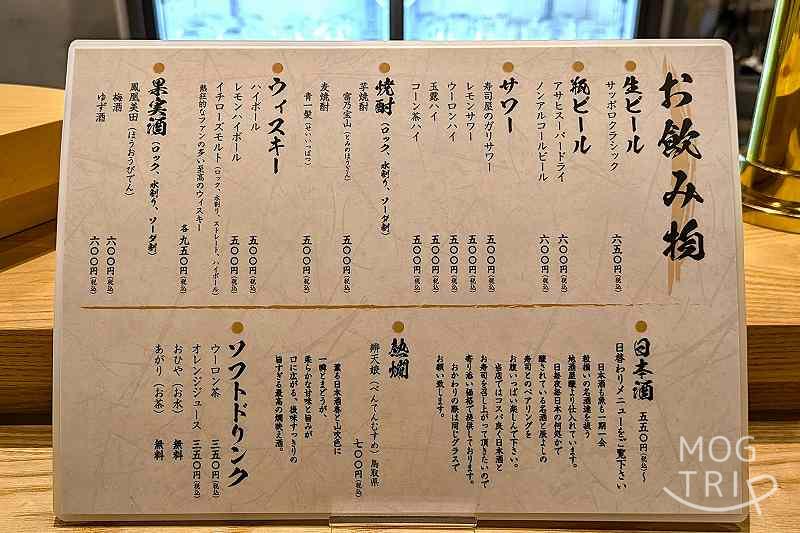 お飲み物
生ビール
サッポロクラシック 六五〇円(税込)
瓶ビール
アサヒスーパードライ 六〇〇円(税込)
ノンアルコールビール 六〇〇円(税込)
サワー
寿司屋のガリサワー 五〇〇円(税込)
レモンサワー 五〇〇円(税込)
ウーロンハイ 五〇〇円(税込)
玉露ハイ 五〇〇円(税込)
コーン茶ハイ 六〇〇円(税込)
焼酎(ロック、水割り、ソーダ割)
芋焼酎
富乃宝山(とみのほうざん) 五〇〇円(税込)
麦焼酎
青一髪(せいいっぱつ) 五〇〇円(税込)
ウィスキー
ハイボール 五〇〇円(税込)
レモンハイボール 五〇〇円(税込)
イチローズモルト(ロック、水割り、ストレート、ハイボール)
熱狂的なファンの多い至高のウィスキー
各九五〇円(税込)
果実酒(ロック、水割り、ソーダ割)
鳳凰美田(ほうおうびでん)
梅酒 六〇〇円(税込)
ゆず酒 六〇〇円(税込)
日本酒 五五〇円(税込)〜
日替わりメニューをご覧下さい
日本酒も魚も一期一会
粒揃いの名酒達を扱う
地酒屋様より仕入れています。
日毎夜毎日本の何処かで
醸されている名酒と辰よしの
寿司とのペアリングを
お腹いっぱい楽しんで下さい。
当店ではコスパ良く日本酒と
お寿司を召し上がって頂きたいので
寄り添い価格で提供しております。
おかわりの際は同じグラスで
お願い致します。
熱燗
辨天娘(べんてんむすめ)鳥取県
七〇〇円(税込)
薫る日本酒香と山吹色に
一瞬とまどうが、
柔らかな甘味と旨みが
口に広がる。後味すっきりの
旨すぎる最高の燗映え酒。
ソフトドリンク
ウーロン茶 三五〇円(税込)
オレンジジュース 三五〇円(税込)
おひや(お水) 無料
あがり(お茶) 無料
MOG
TRIP